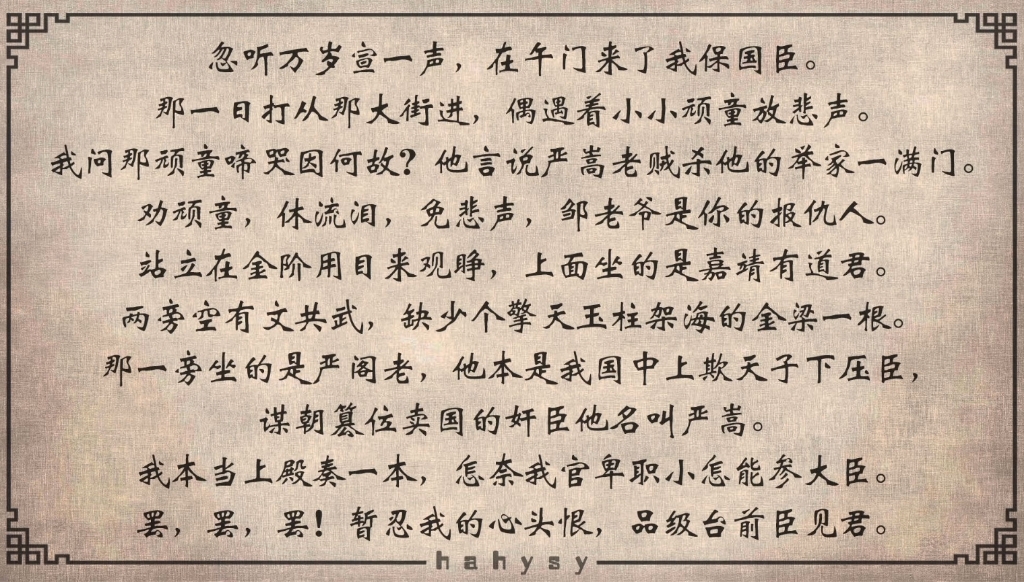 忽听万岁宣一声，在午门来了我保国臣。
那一日打从那大街进，偶遇着小小顽童放悲声。
我问那顽童啼哭因何故？他言说严嵩老贼杀他的举家一满门。
劝顽童，休流泪，免悲声，邹老爷是你的报仇人。
站立在金阶用目来观睁，上面坐的是嘉靖有道君。
两旁空有文共武，缺少个擎天玉柱架海的金梁一根。
那一旁坐的是严阁老，他本是我国中上欺天子下压臣，
谋朝篡位卖国的奸臣他名叫严嵩。
我本当上殿奏一本，怎奈我官卑职小怎能参大臣。
罢，罢，罢！暂忍我的心头恨，品级台前臣见君。
hahysy